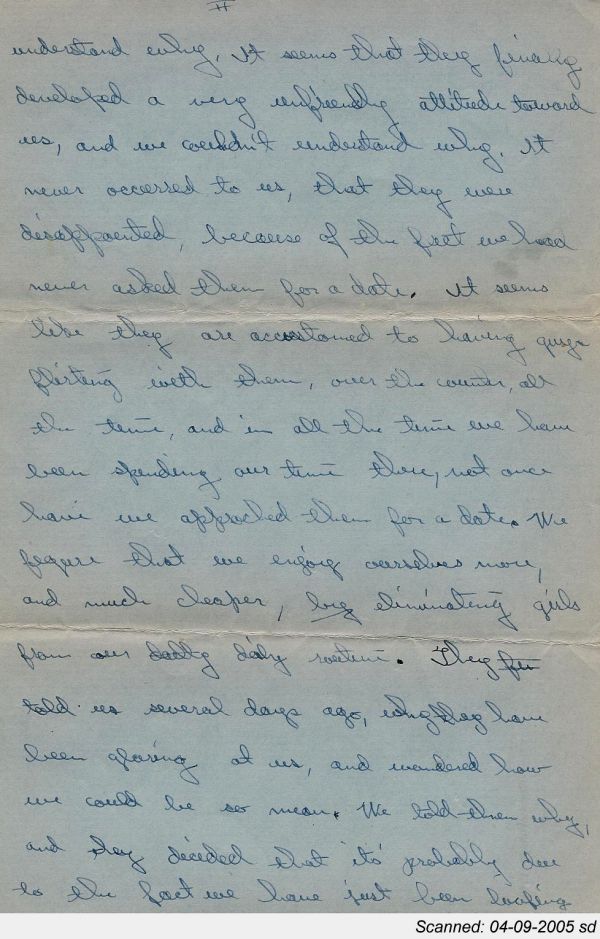 II
understand why. It seems that they finally
developed a very unfriendly attitude toward
us, and we couldn't understand why. It
never occurred to us, that they were
disappointed, because of the fact we had
never asked them for a date. It seems
like they are accustomed to having guys
flirting with them, over the counter, all
the time, and in all the time we have
been spending our time there, not once
have we approched them for a date. We
figure that we enjoy ourselves more,
and much cheaper, by eliminating girls
from our daily routine. They
told us several days ago, why they have
been glaring at us, and wondered how
we could be so mean. We told them why,
and they decided that it's probably due
to the fact we have just been loafing
Scanned: 04-09-2005 sd